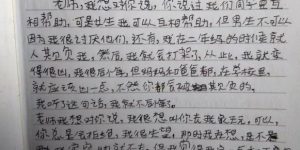 老师,我想对你说,你说过我们同学要互
相帮助,可是女生我可以互相帮助,但男生不可以
因为我很讨厌他们,还有,我在二年级的时候就
人其负我,然后,我就会打架,从此,我就变
得很凶,我很后悔,但妈妈和爸爸都,在学校里
就应该凶一点,不然你都会被其负的。
我听了这句话,我就不后悔了。
老师我想对你说,我很想叫你去我家玩,可以
你总是会拒绝,我很失望,那明我在想,是不是